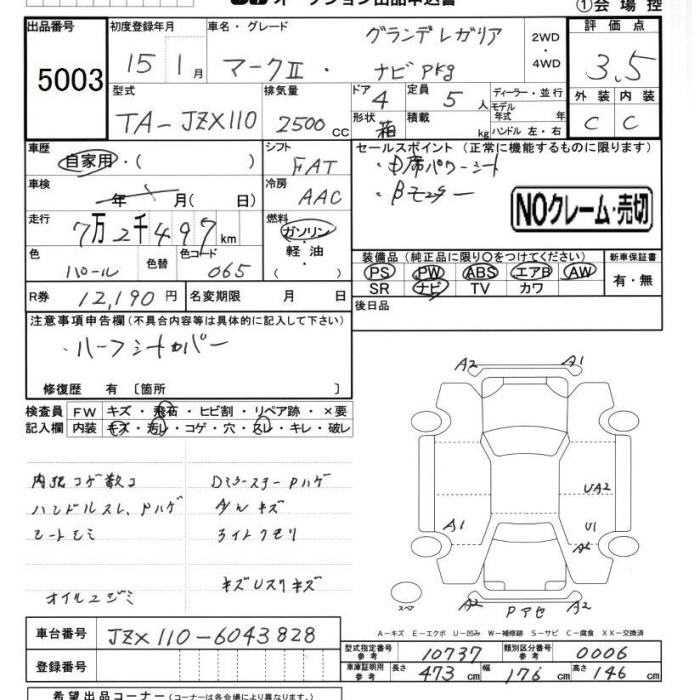 オークション出品申込書
①会場控
出品番号
5003
初度登録年月
15 1月
車名・グレード
グランデレガリア
マークⅡ・ナビPkg
2WD・4WD
評価点
3.5
外装 内装
C C
型式
TA-JZX110
排気量
2500cc
ドア 4
定員 5人
ディーラー・並行
モデル年式 年
形状 箱
積載 kg
ハンドル 左・右
車歴
自家用・( )
シフト
FAT
セールスポイント(正常に機能するものに限ります)
・D席パワーシート
車検
年 月( 日)
冷房
AAC
NOクレーム・売切
走行
7万2千497km
燃料
ガソリン・軽油・( )
色
パール
色替
色コード
065
装備品(純正品に限り○をつけてください)
PS PW ABS エアB AW
SR ナビ TV カワ
新車保証書
有・無
R券 12,190円
名変期限 月 日
後日品
注意事項申告欄(不具合内容等は具体的に記入して下さい)
・ハーフシートカバー
修復歴 有〔箇所 〕
検査員記入欄
FW キズ・飛石・ヒビ割・リペア跡・×要
内装 キズ・汚レ・コゲ・穴・スレ・キレ・破レ
ハンドルスレ、Pハゲ
A/Wキズ
ライトクモリ
A2 A1
UA2
A1 U1
A2
スペア
A2 A2
A-キズ E-エクボ U-凹み W-補修跡 S-サビ C-腐食 XX-交換済
車台番号
JZX110-6043828
登録番号
型式指定番号 参考 10737
類別区分番号 参考 0006
車庫証明用 参考 長さ 473cm 幅 176cm 高さ 146cm
希望出品コーナー(コーナーは各会場により異なります。)